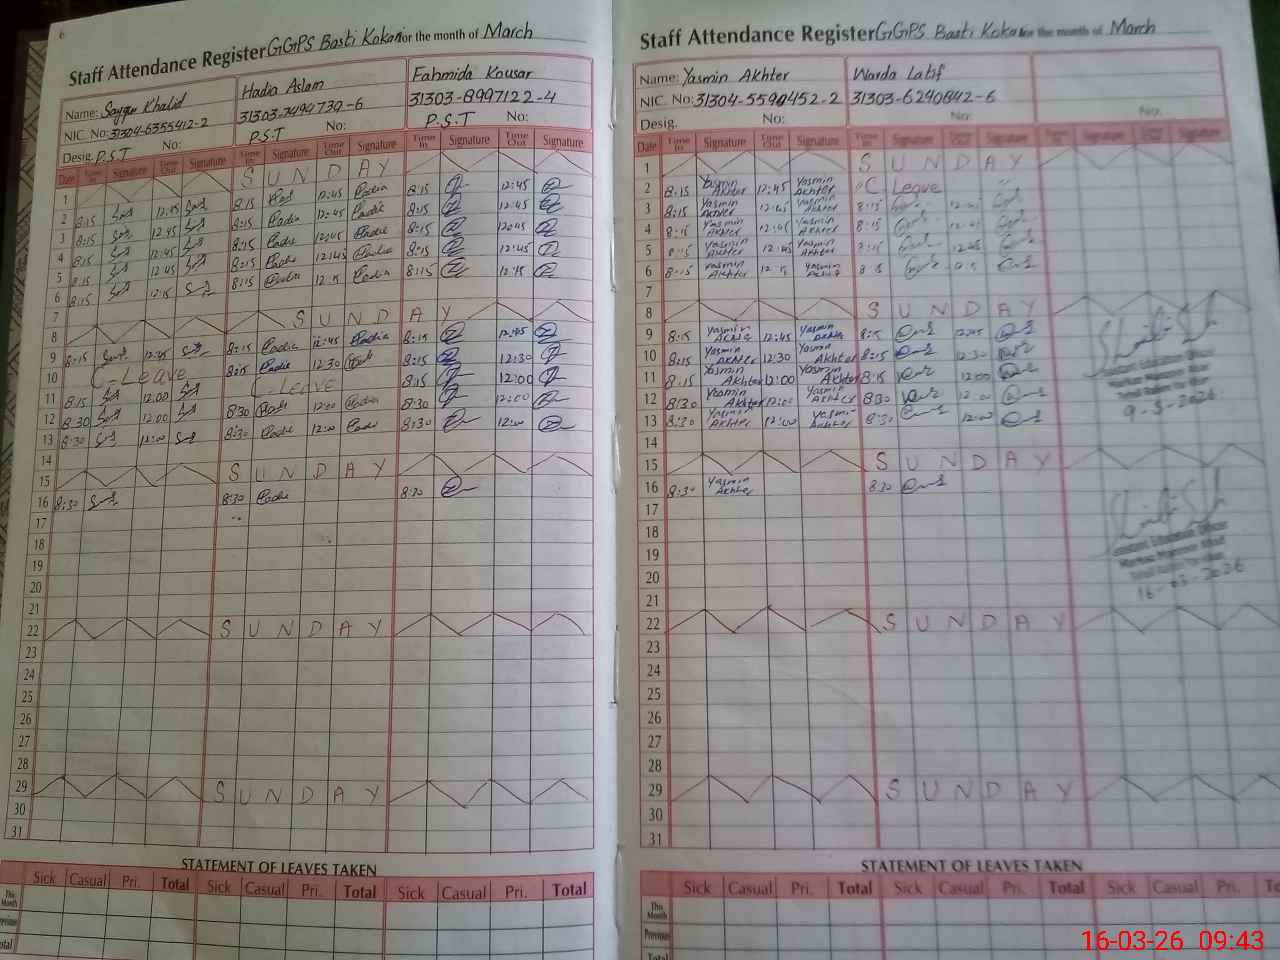 6
Staff Attendance Register GGPS Basti Kokan for the month of March
Name: Sayyan Khalid Hadia Aslam Fahmida Kousar
NIC. No: 31304-6355412-2 31303-7494739-6 31303-8997122-4
Desig. P.S.T No: P.S.T No: P.S.T No:
Date Time In Signature Time Out Signature Time In Signature Time Out Signature Time In Signature Time Out Signature
1 SUNDAY
2 8:15 12:45 8:15 12:45 Hadia 8:15 12:45
3 8:15 12:45 8:15 Hadia 12:45 Hadia 8:15 12:45
4 8:15 12:45 8:15 Hadia 12:45 Hadia 8:15 12:45
5 8:15 12:45 8:15 Hadia 12:45 Hadia 8:15 12:45
6 8:15 12:15 8:15 Hadia 12:15 Hadia 8:15 12:15
7
8 SUNDAY
9 8:15 12:45 8:15 Hadia 12:45 Hadia 8:15 12:45
10 C-Leave 8:15 Hadia 12:30 8:15 12:30
11 8:15 12:00 C-LEAVE 8:15 12:00
12 8:30 12:00 8:30 Hadia 12:00 Hadia 8:30 12:00
13 8:30 12:00 8:30 Hadia 12:00 Hadia 8:30 12:00
14
15 SUNDAY
16 8:30 8:30 Hadia 8:30
17
18
19
20
21
22 SUNDAY
23
24
25
26
27
28
29 SUNDAY
30
31
STATEMENT OF LEAVES TAKEN
Sick Casual Pri. Total Sick Casual Pri. Total Sick Casual Pri. Total
This Month
Previous
Total
Staff Attendance Register GGPS Basti Kokan for the month of March
Name: Yasmin Akhter Warda Latif
NIC. No: 31304-5590452-2 31303-6240842-6
Desig. No: No:
Date Time In Signature Time Out Signature Time In Signature Time Out Signature Time In Signature Time Out Signature
1 SUNDAY
2 8:15 Yasmin Akhter 12:45 Yasmin Akhter C Leave
3 8:15 Yasmin Akhter 12:45 Yasmin Akhter 8:15 12:45
4 8:15 Yasmin Akhter 12:45 Yasmin Akhter 8:15 12:45
5 8:15 Yasmin Akhter 12:45 Yasmin Akhter 8:15 12:45
6 8:15 Yasmin Akhter 12:15 Yasmin Akhter 8:15
7
8 SUNDAY
9 8:15 Yasmin Akhter 12:45 Yasmin Akhter 8:15 12:45
10 8:15 Yasmin Akhter 12:30 Yasmin Akhter 8:15 12:30
11 8:15 Yasmin Akhter 12:00 Yasmin Akhter 8:15 12:00
12 8:30 Yasmin Akhter 12:00 Yasmin Akhter 8:30 12:00
13 8:30 Yasmin Akhter 12:00 Yasmin Akhter 8:30 12:00
14
15 SUNDAY
16 8:30 Yasmin Akhter 8:30
17
18
19
20
21
22 SUNDAY
23
24
25
26
27
28
29 SUNDAY
30
31
9-3-2026
16-03-2026
STATEMENT OF LEAVES TAKEN
Sick Casual Pri. Total Sick Casual Pri. Total Sick Casual Pri.
This Month
Previous
Total
16-03-26 09:43